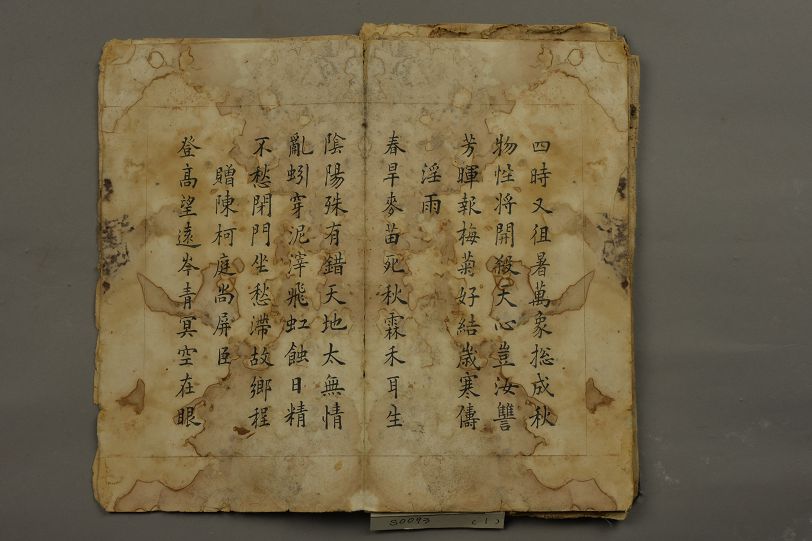 四時又徂暑萬象捴成秋
物性将開殺天心豈汝讐
芳暉報梅菊好結歲寒儔
淫雨
春旱麥苗死秋霖禾耳生
陰陽殊有錯天地太無情
亂蚓穿泥滓飛虹蝕日精
不愁閉門坐愁滯故鄉程
贈陳柯庭尚屏臣
登高望遠岑青冥空在眼
S0093 (1)